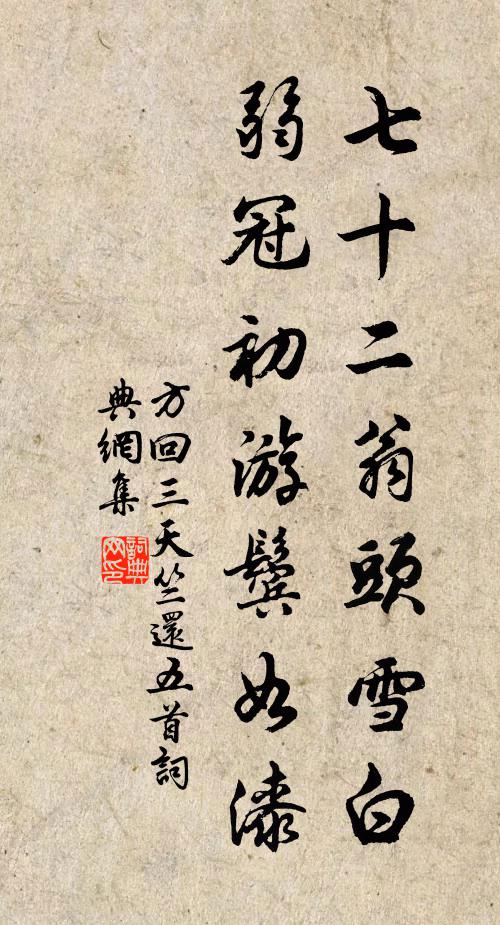 七十二翁頭雪白
弱冠初游鬢如漆
方回三天竺還五首詞
典網集
詞典
网印